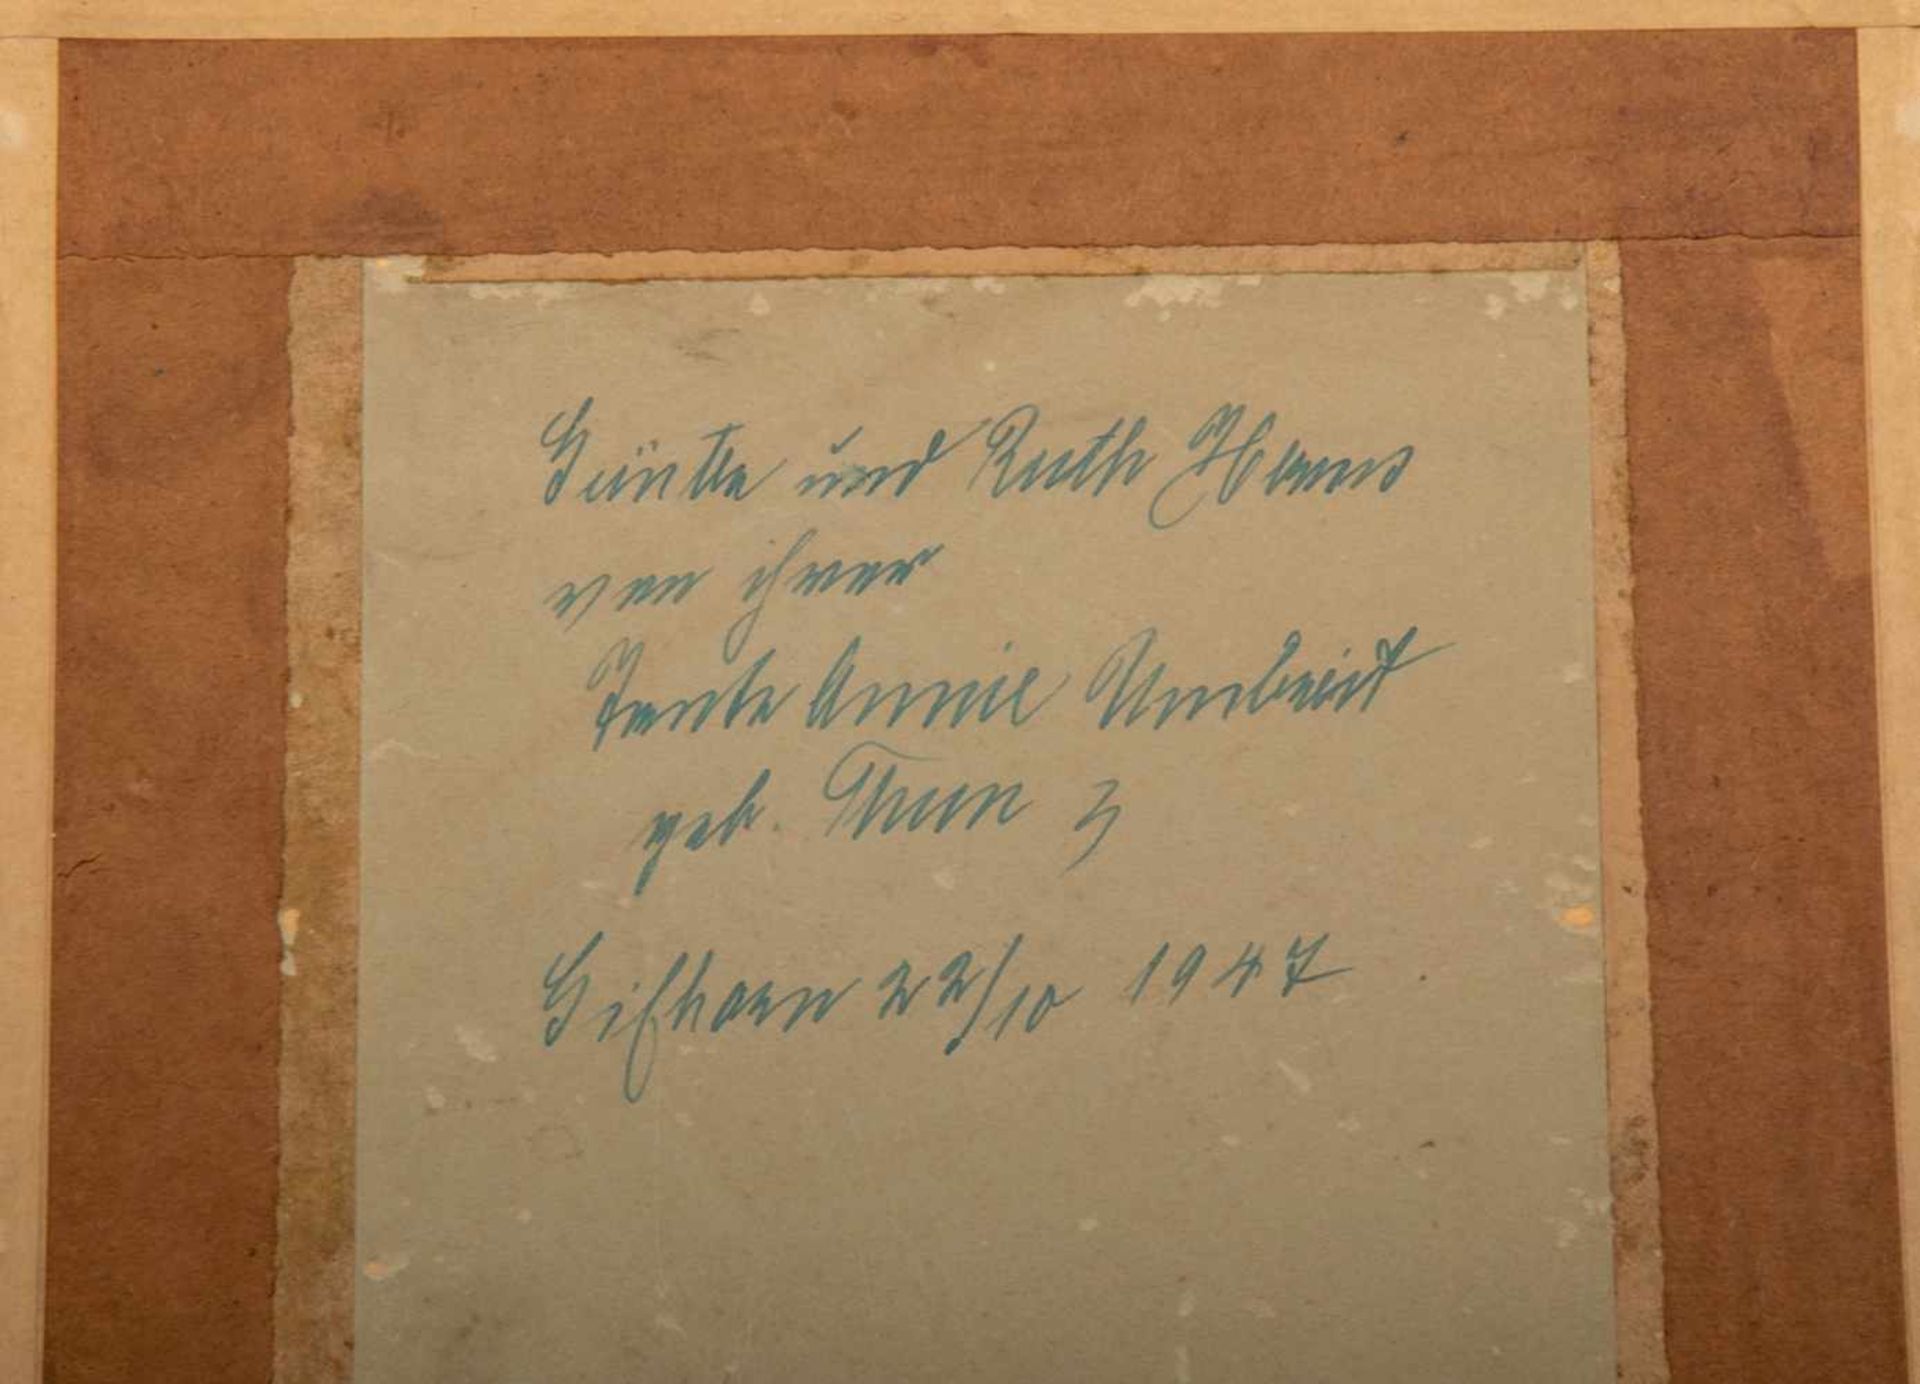 Günter und Ruth
von ihrer
Tante Annie Umbreit
geb. Thun
Gifhorn 22/10 1947